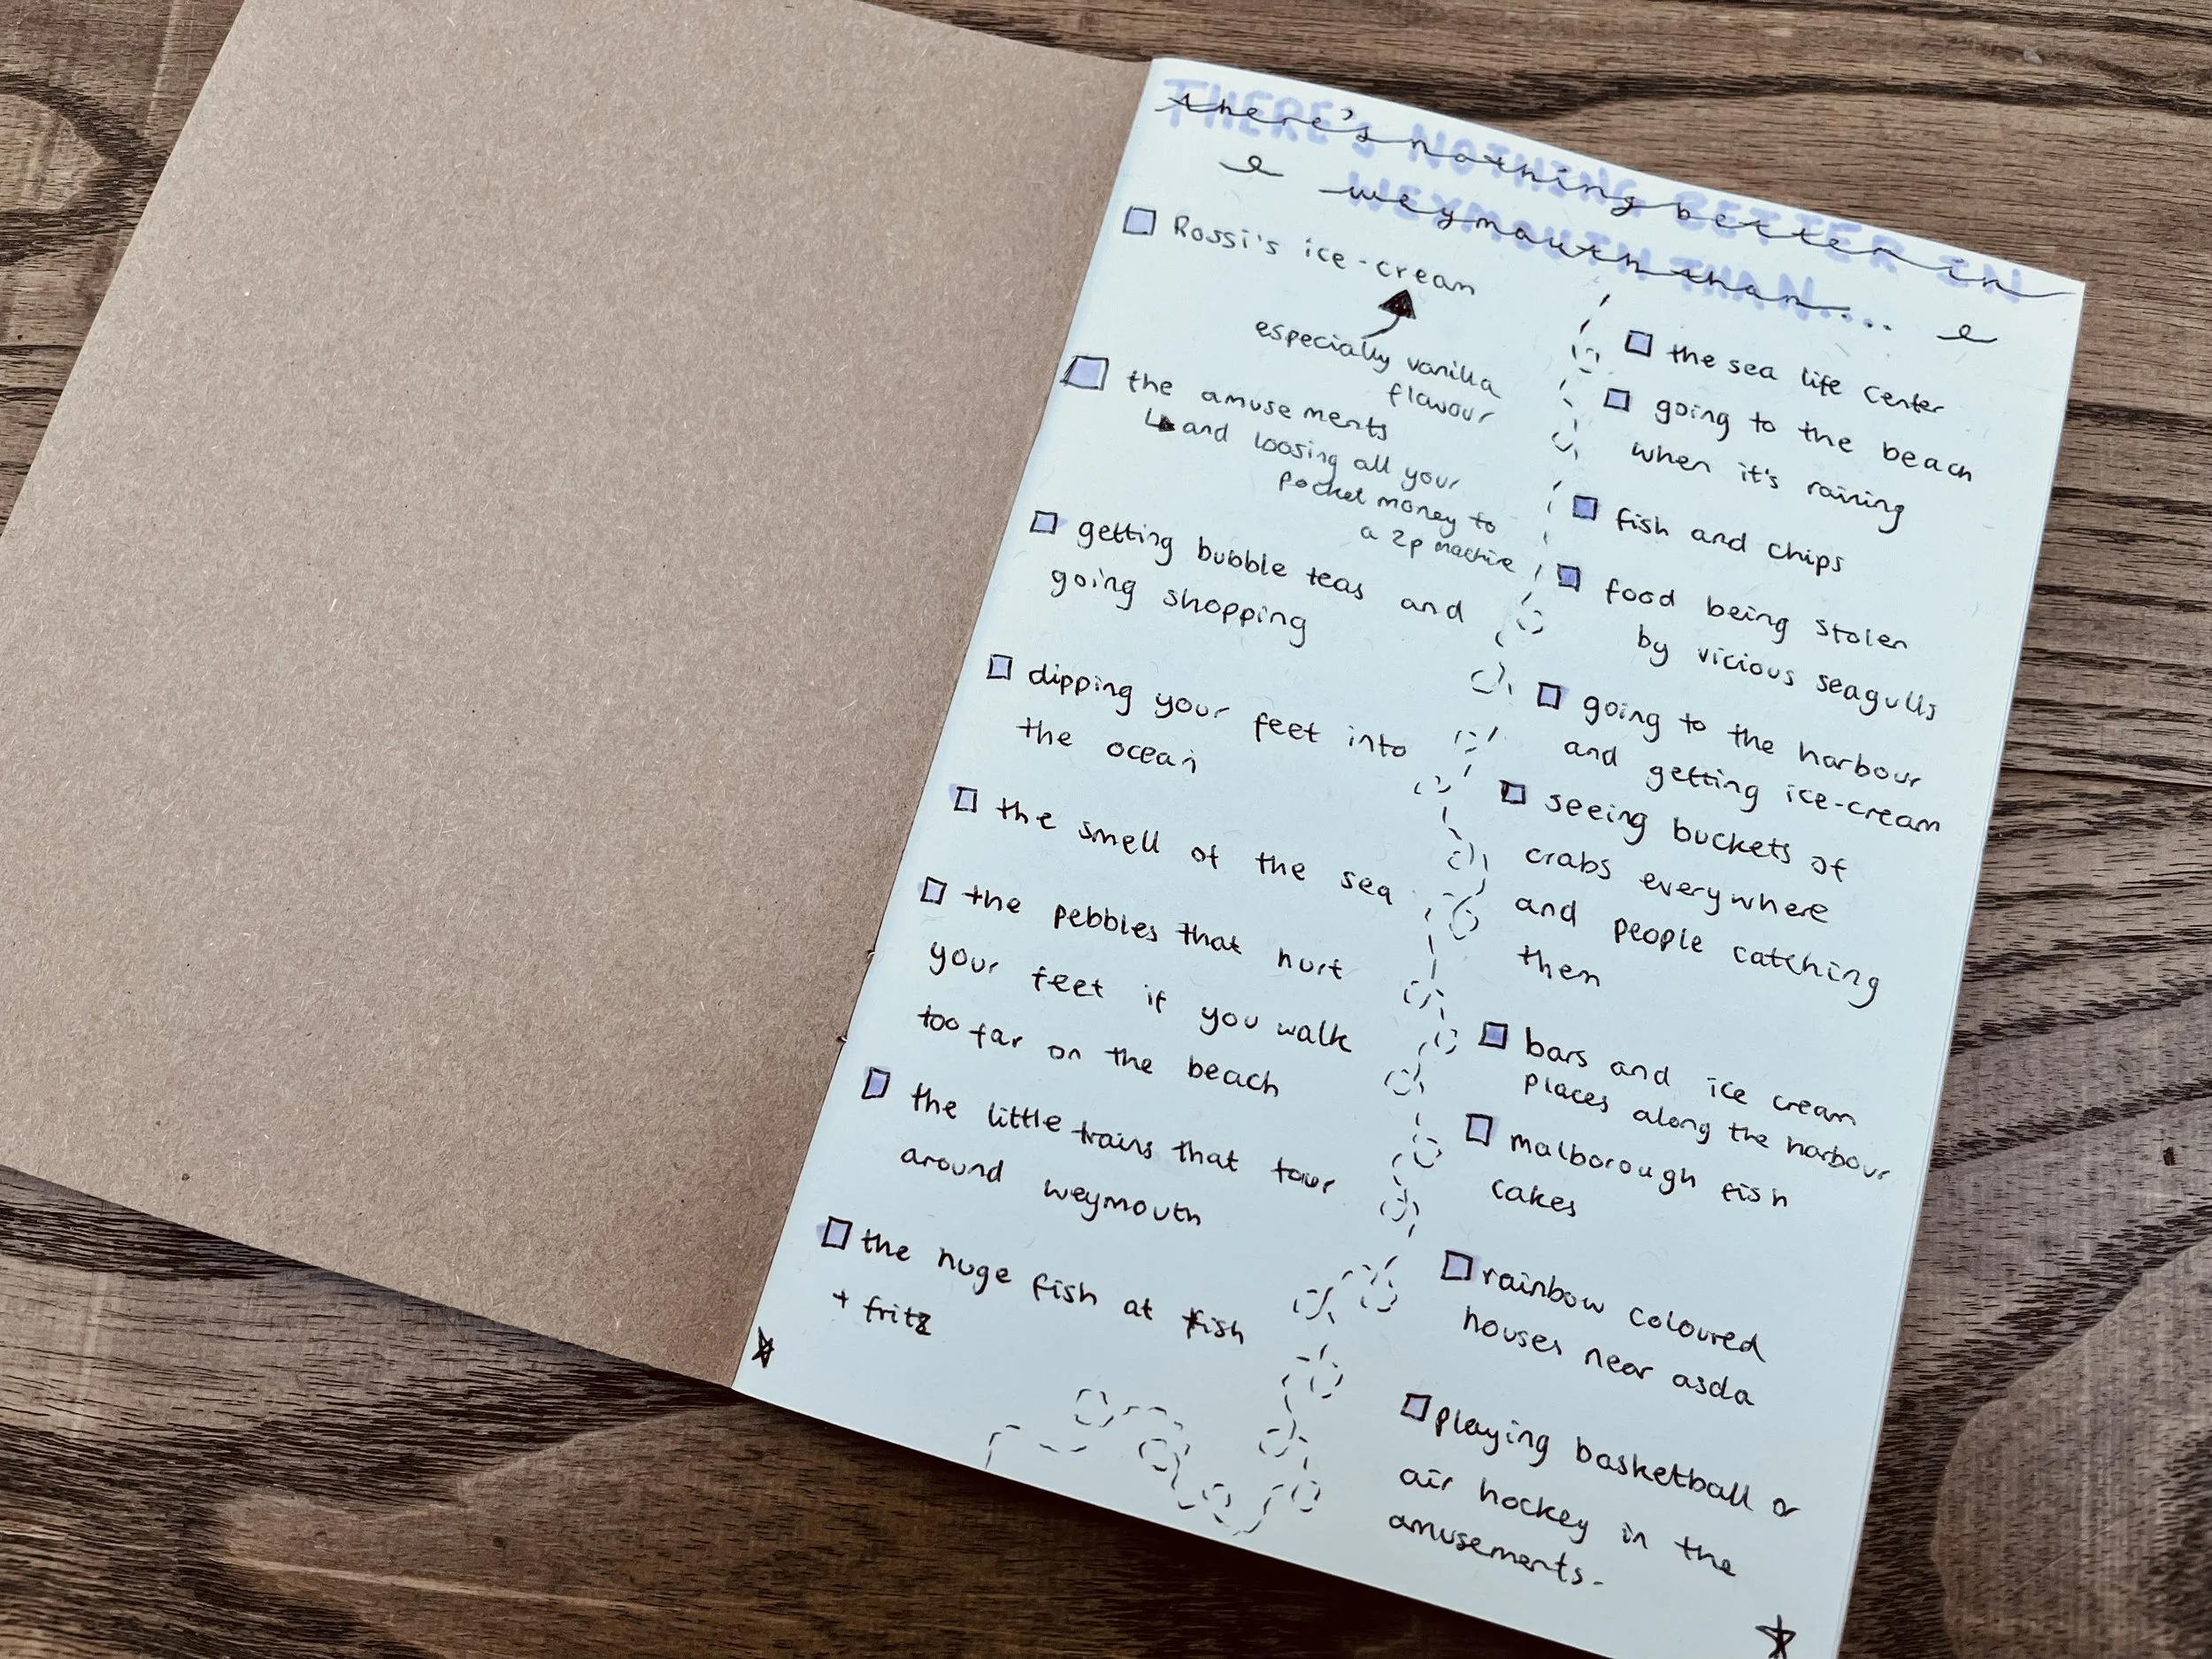 there's nothing better in
weymouth than....
Rossi's ice-cream
especially vanilla
flavour
the amusements
and loosing all your
pocket money to
a 2p machine
getting bubble teas and
going shopping
dipping your feet into
the ocean
the smell of the sea
the pebbles that hurt
your feet if you walk
too far on the beach
the little trains that tour
around weymouth
the huge fish at fish
+ fritz
the sea life center
going to the beach
when it's raining
fish and chips
food being stolen
by vicious seagulls
going to the harbour
and getting ice-cream
seeing buckets of
crabs everywhere
and people catching
them
bars and ice cream
places along the harbour
malborough fish
cakes
rainbow coloured
houses near asda
playing basketball or
air hockey in the
amusements.